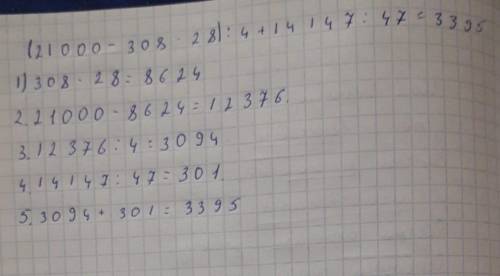 (21000 - 308 · 28) : 4 + 14147 : 47 = 3395
1) 308 · 28 = 8624
2. 21000 - 8624 = 12376.
3. 12376 : 4 = 3094
4. 14147 : 47 = 301.
5. 3094 + 301 = 3395